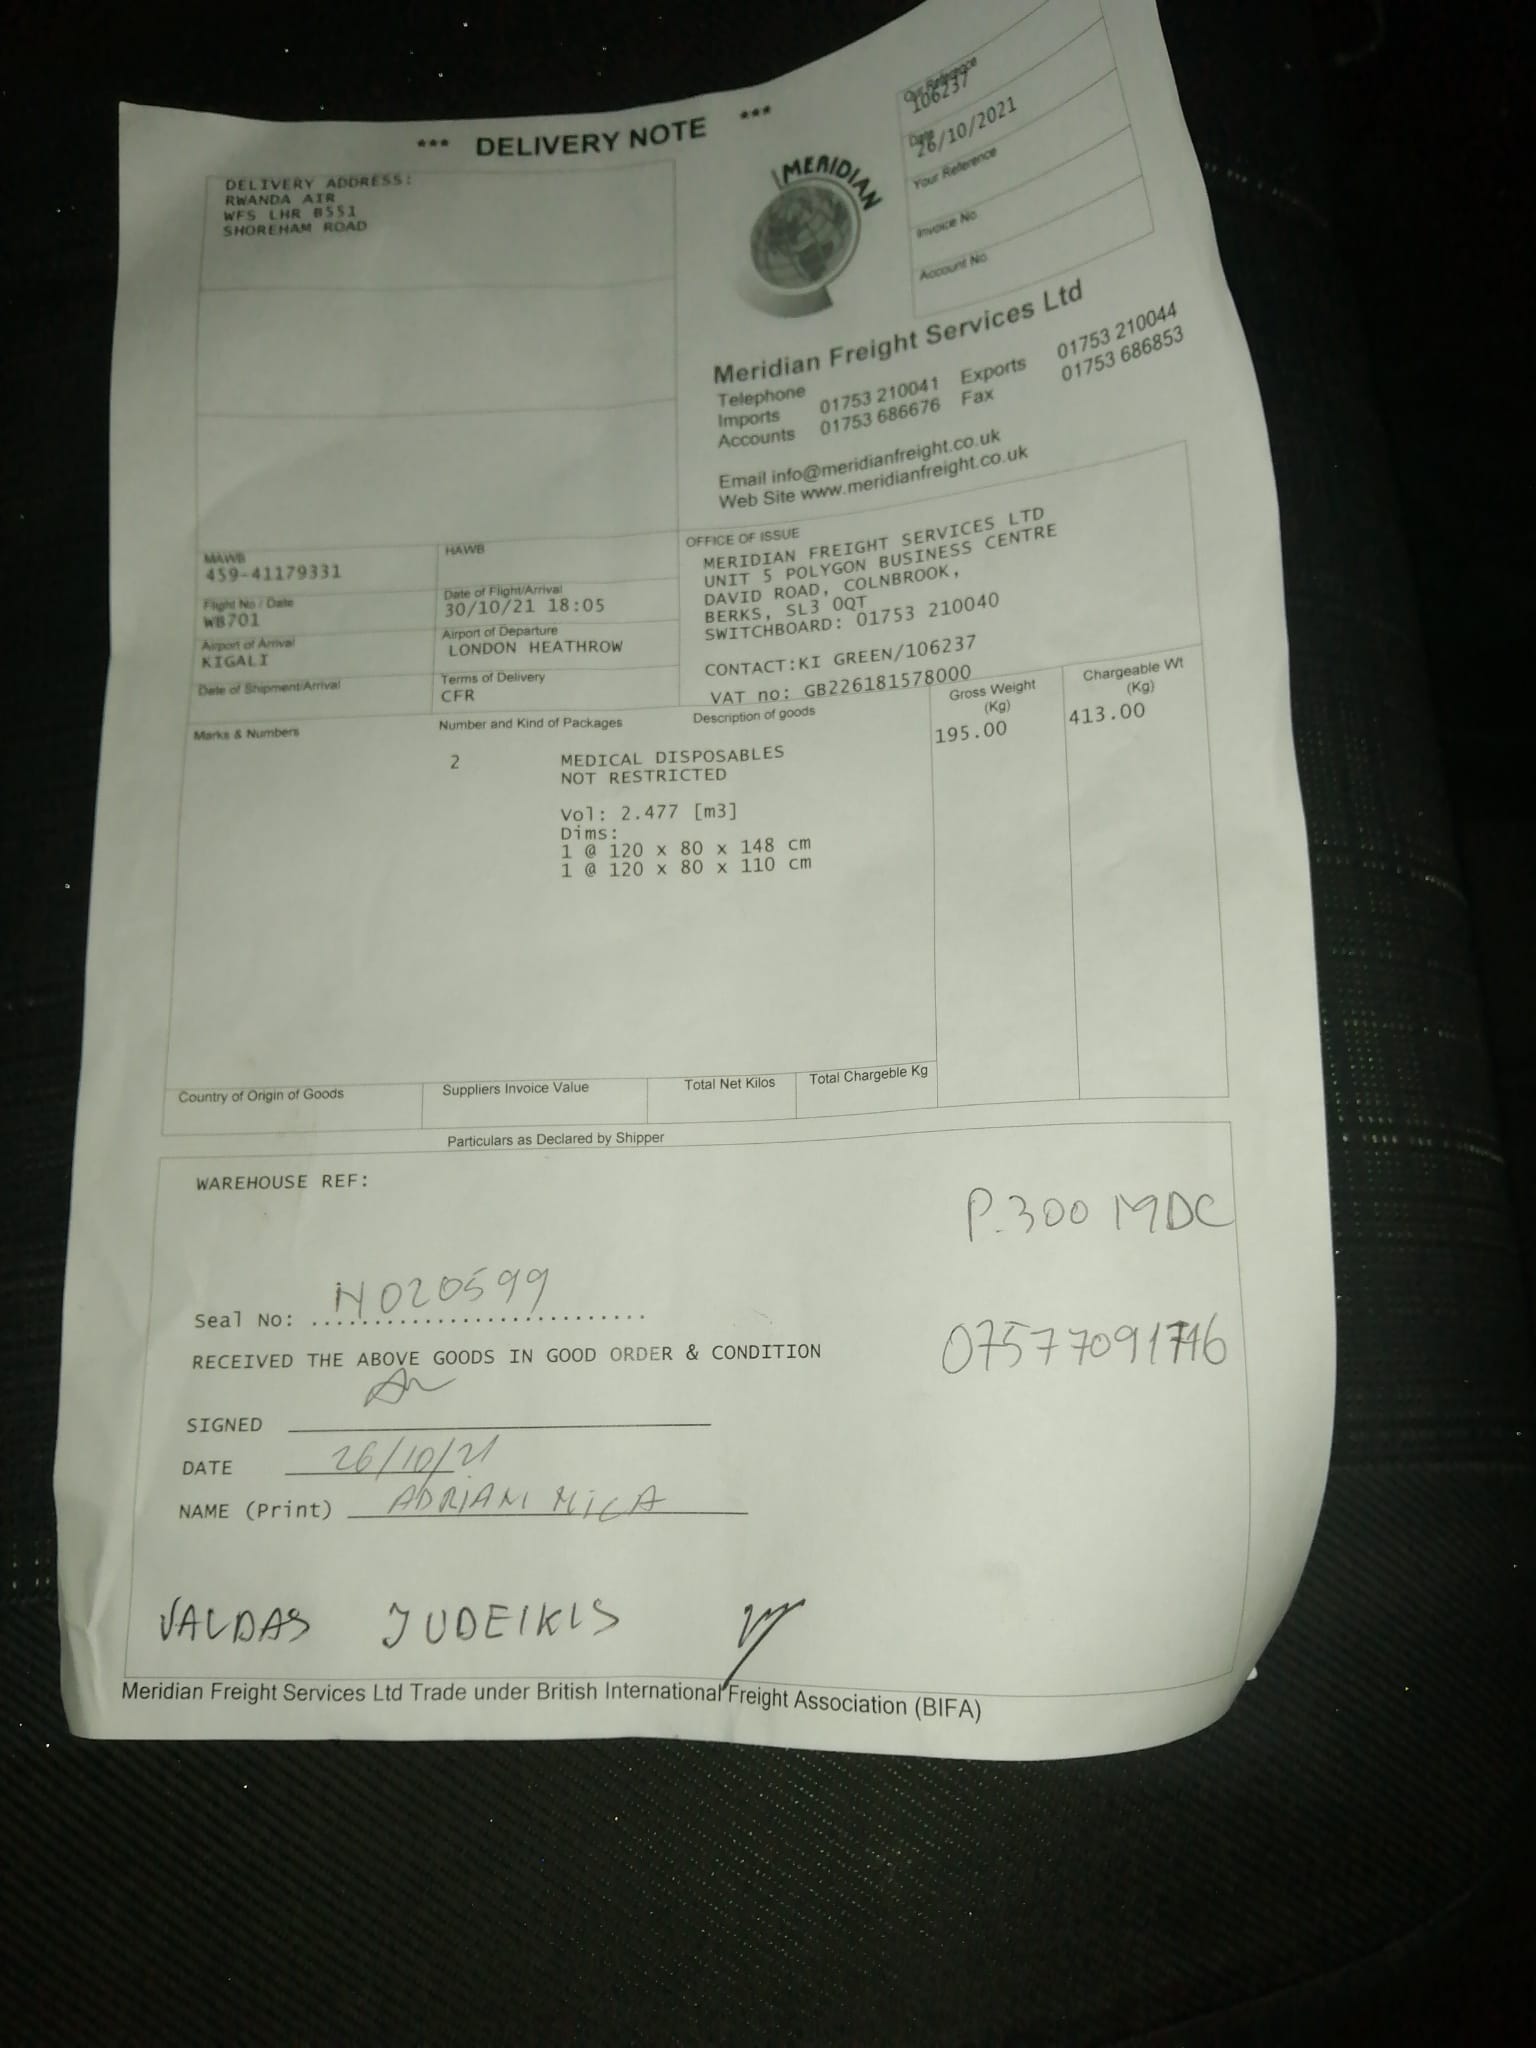 *** DELIVERY NOTE ***
Our Reference
106237
Date
26/10/2021
Your Reference
Invoice No
Account No
DELIVERY ADDRESS:
RWANDA AIR
WFS LHR B551
SHOREHAM ROAD
MERIDIAN
Meridian Freight Services Ltd
Telephone
Imports 01753 210041 Exports 01753 210044
Accounts 01753 686676 Fax 01753 686853
Email info@meridianfreight.co.uk
Web Site www.meridianfreight.co.uk
MAWB
459-41179331
HAWB
Flight No / Date
WB701
Date of Flight/Arrival
30/10/21 18:05
Airport of Arrival
KIGALI
Airport of Departure
LONDON HEATHROW
Date of Shipment/Arrival
Terms of Delivery
CFR
OFFICE OF ISSUE
MERIDIAN FREIGHT SERVICES LTD
UNIT 5 POLYGON BUSINESS CENTRE
DAVID ROAD, COLNBROOK,
BERKS, SL3 0QT
SWITCHBOARD: 01753 210040
CONTACT:KI GREEN/106237
VAT no: GB226181578000
Marks & Numbers
Number and Kind of Packages
Description of goods
Gross Weight
(Kg)
Chargeable Wt
(Kg)
2 MEDICAL DISPOSABLES 195.00 413.00
NOT RESTRICTED
Vol: 2.477 [m3]
Dims:
1 @ 120 x 80 x 148 cm
1 @ 120 x 80 x 110 cm
Country of Origin of Goods
Suppliers Invoice Value
Total Net Kilos
Total Chargeble Kg
Particulars as Declared by Shipper
WAREHOUSE REF:
P.300 MDC
Seal No: N020599
RECEIVED THE ABOVE GOODS IN GOOD ORDER & CONDITION
SIGNED
DATE 26/10/21
NAME (Print) ADRIAN MICA
VALDAS JUDEIKIS
Meridian Freight Services Ltd Trade under British International Freight Association (BIFA)